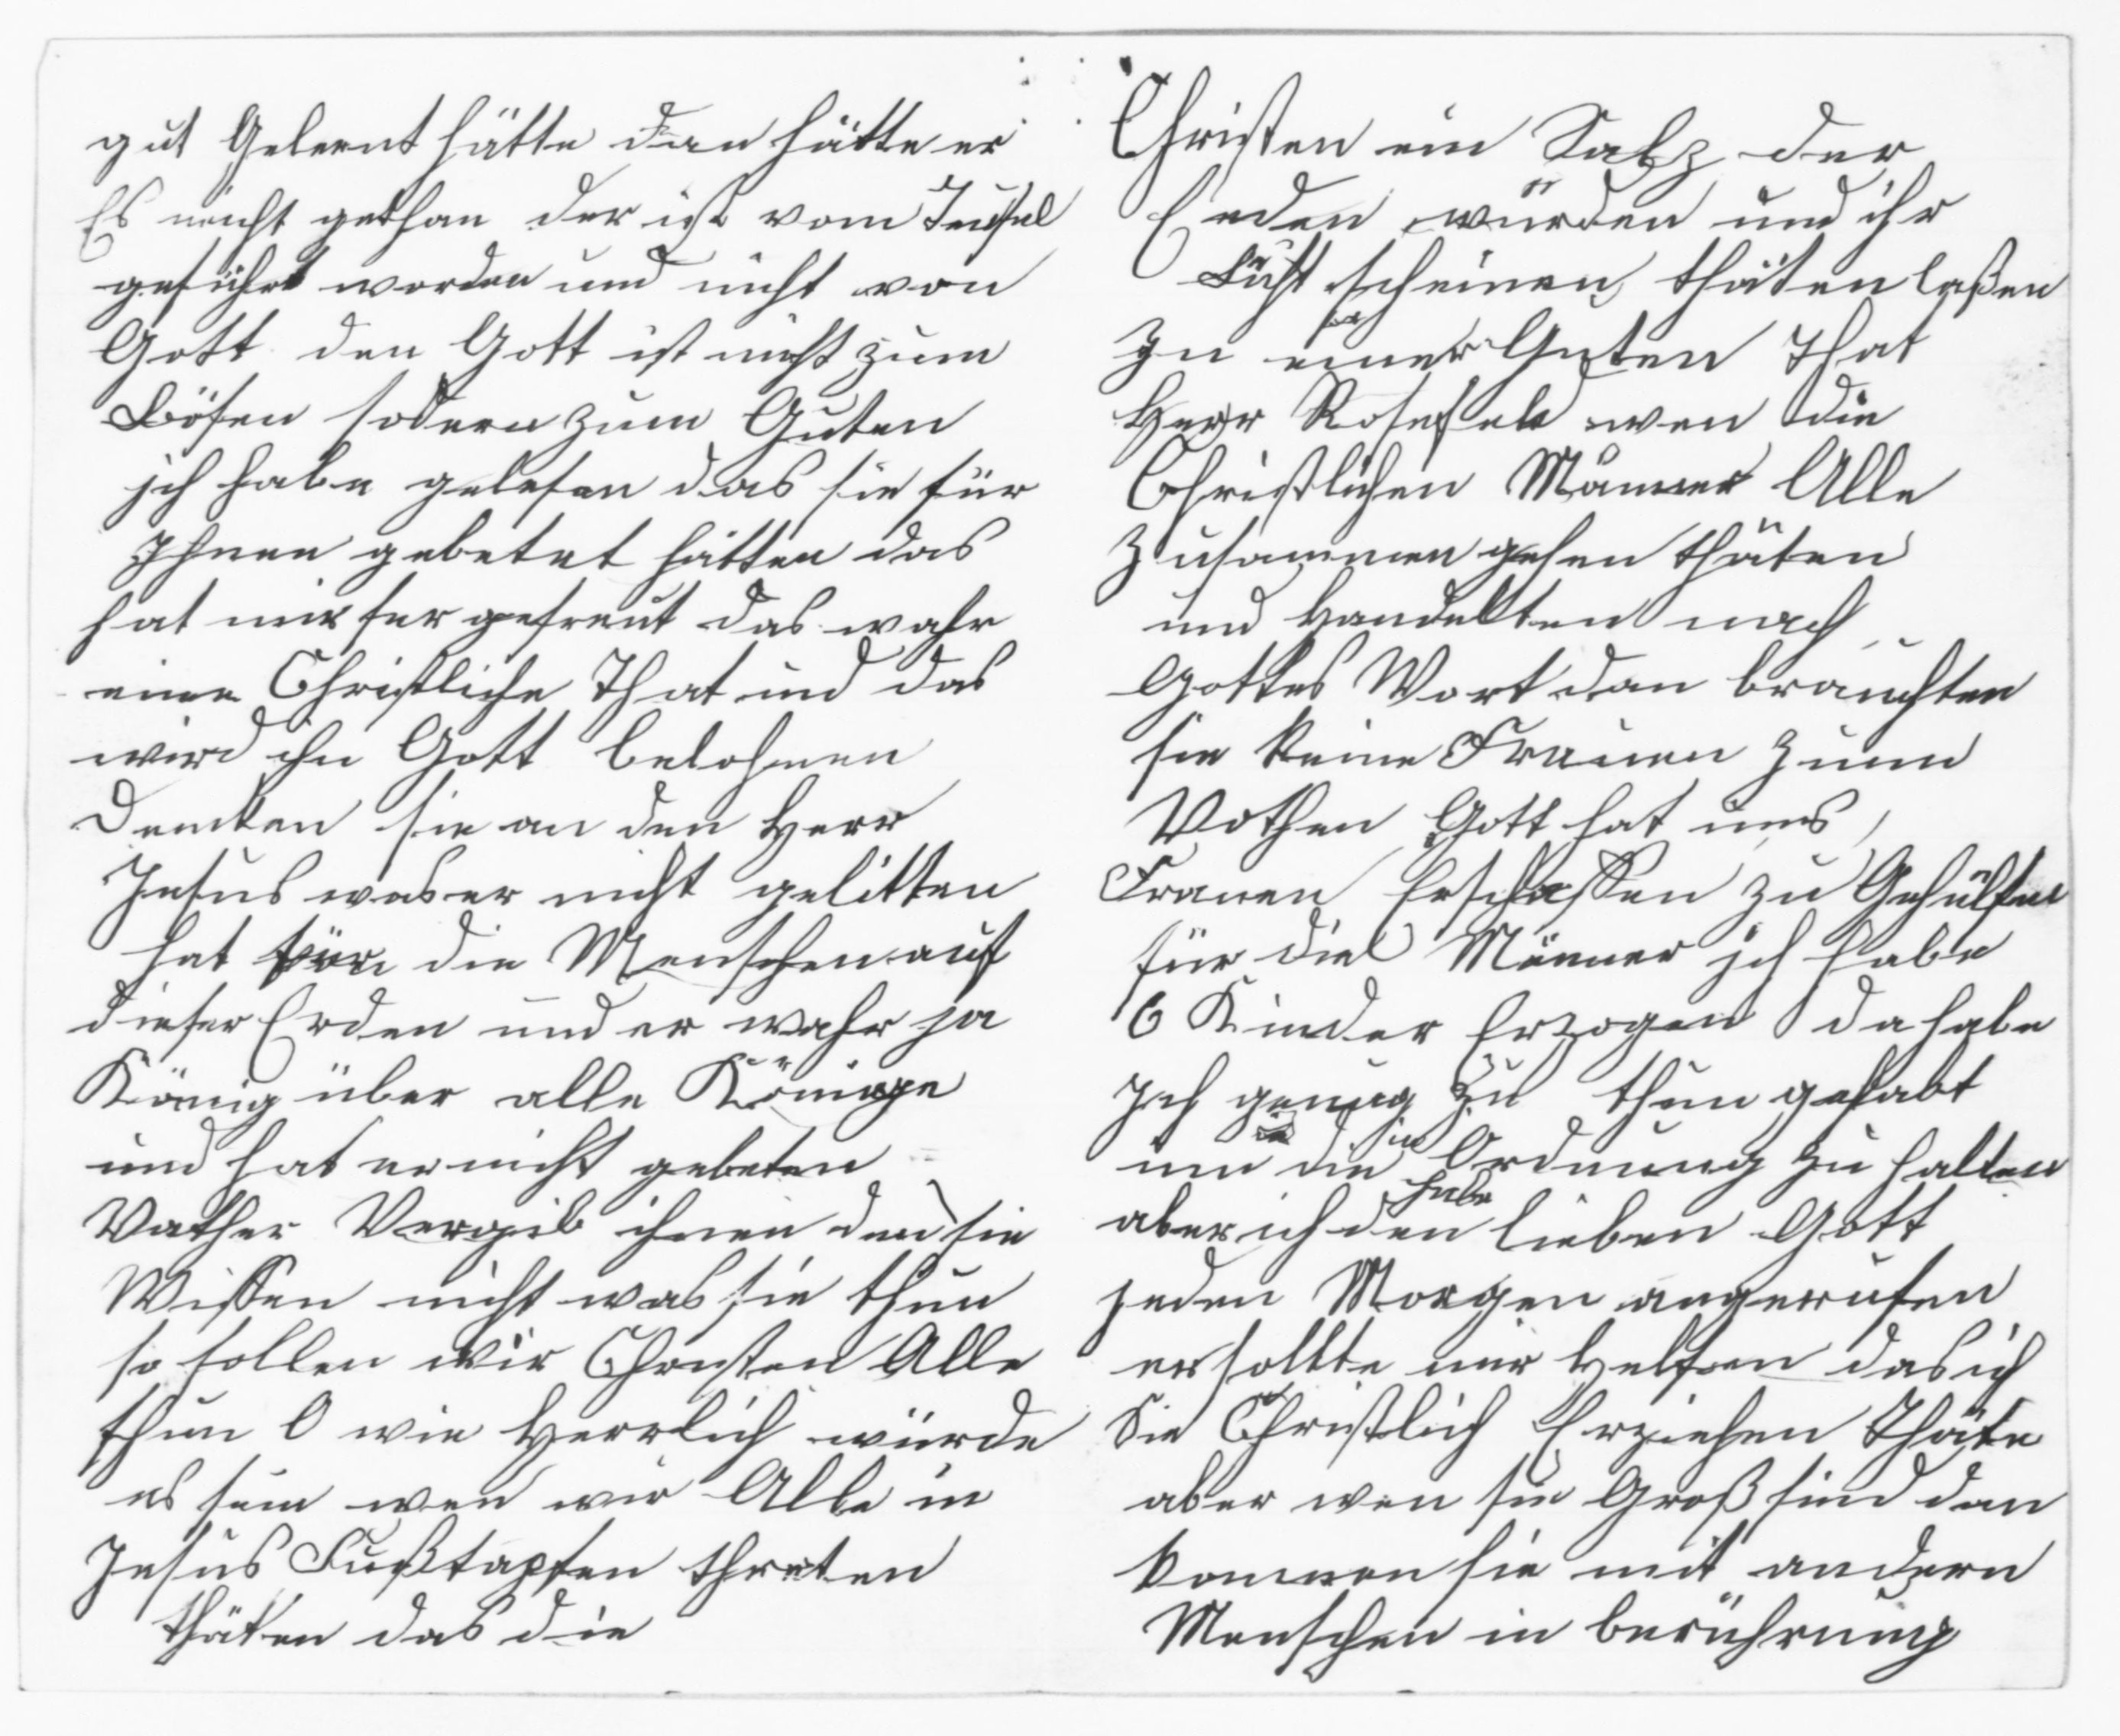 gut Gelernt hätte dan hätte er
Es nicht gethan der ist vom Teufel
geführt worden und nicht von
Gott den Gott ist nicht zum
Bösen sodern zum Guten
ich habe gelesen das sie für
Ihnen gebetet hätten das
hat mir ser gefreut das wahr
eine Christliche That und das
wird ihn Gott belohnen
Dencken sie an den Herr
Jesus was er nicht gelitten
hat für die Menschen auf
dieser Erden und er wahr ja
König über alle Könige
und hat er nicht gebeten
Vather Vergib ihnen den sie
Wissen nicht was sie thun
so sollen wir Christen Alle
thun O wie Herrlich würde
es sein wen wir Alle in
Jesus Fußtapfen threten
thäten das die
Christen ein Salz der
Erden würden und ihr
Licht scheinen thäten laßen
In einer Guten That
Herr Rosefeld wen die
Christlichen Männer Alle
Zusammen gehen thäten
und Handelten nach
Gottes Wort dan brauchten
sie keine Frauen zum
Vothen Gott hat uns
Frauen Erschaffen zu Gehülfen
für die Männer ich habe
6 Kinder Erzogen da habe
Ich genug zu thun gehabt
um die in Ordnung zu halten
aber ich habe den lieben Gott
jeden Morgen angerufen
er sollte mir Helfen das ich
Sie Christlich Erziehen Thäte
aber wen sie Groß sind dan
kommen sie mit andern
Menschen in berührung